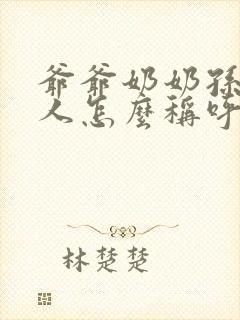 爺爺奶奶孫
人怎麼稱呼
林楚楚